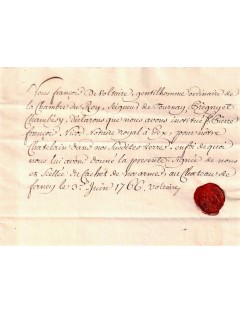 Nous françois de Voltaire, gentilhomme ordinaire de
la Chambre du Roy, Seigneur de Tournay, Prégny et
Chambésy, déclarons que nous avons institué Pierre
françois Nicod notaire royal à Gex, pour notre
Chatelain dans nos susdites terres. en foi de quoi
nous lui avons donné la presente signée de nous
et scellée du cachet de nos armes, au Chateau de
ferney le 3e Juin 1766. Voltaire